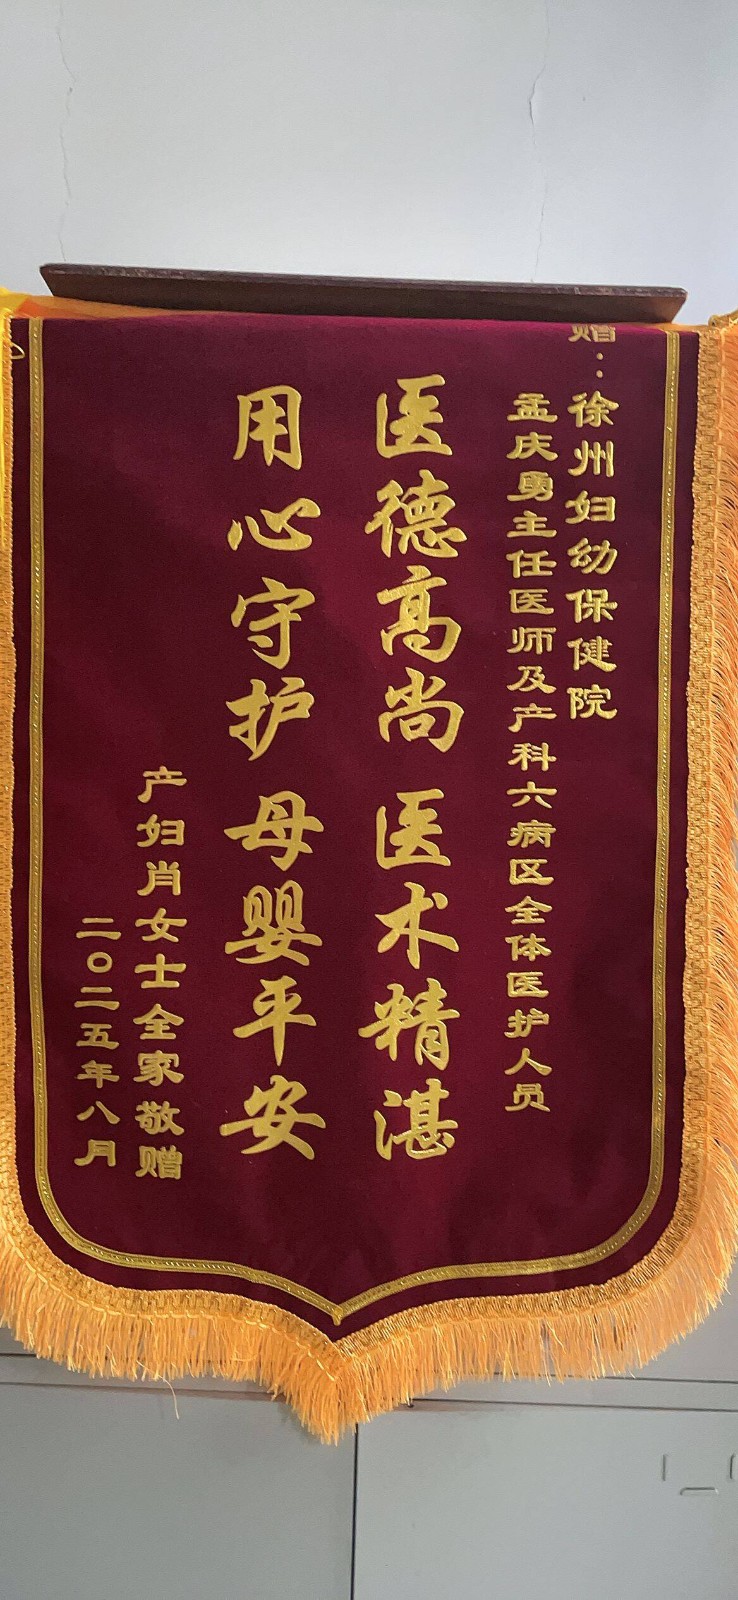 赠：徐州妇幼保健院
孟庆勇主任医师及产科六病区全体医护人员
医德高尚 医术精湛
用心守护 母婴平安
产妇肖女士全家敬赠
二〇二五年八月